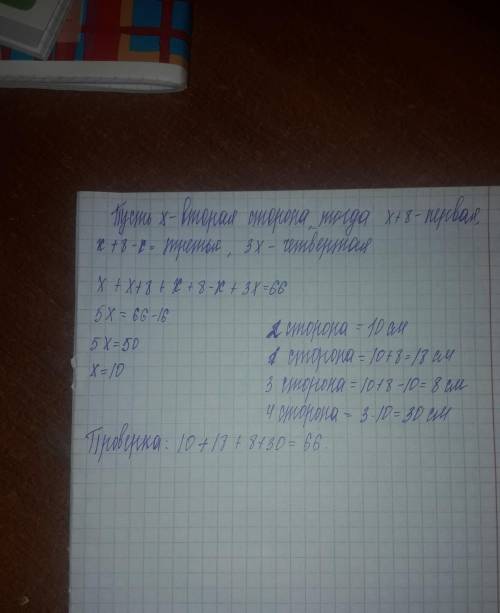 Пусть x - вторая сторона, тогда x+8 - первая,
x+8-x = третья, 3x - четвертая
x + x+8 + x + 8-x + 3x=66
5x = 66-16
5x=50
x=10
2 сторона = 10 см
1 сторона = 10+8=18 см
3 сторона = 10+8-10=8 см
4 сторона = 3·10=30 см
Проверка: 10+18+8+30= 66